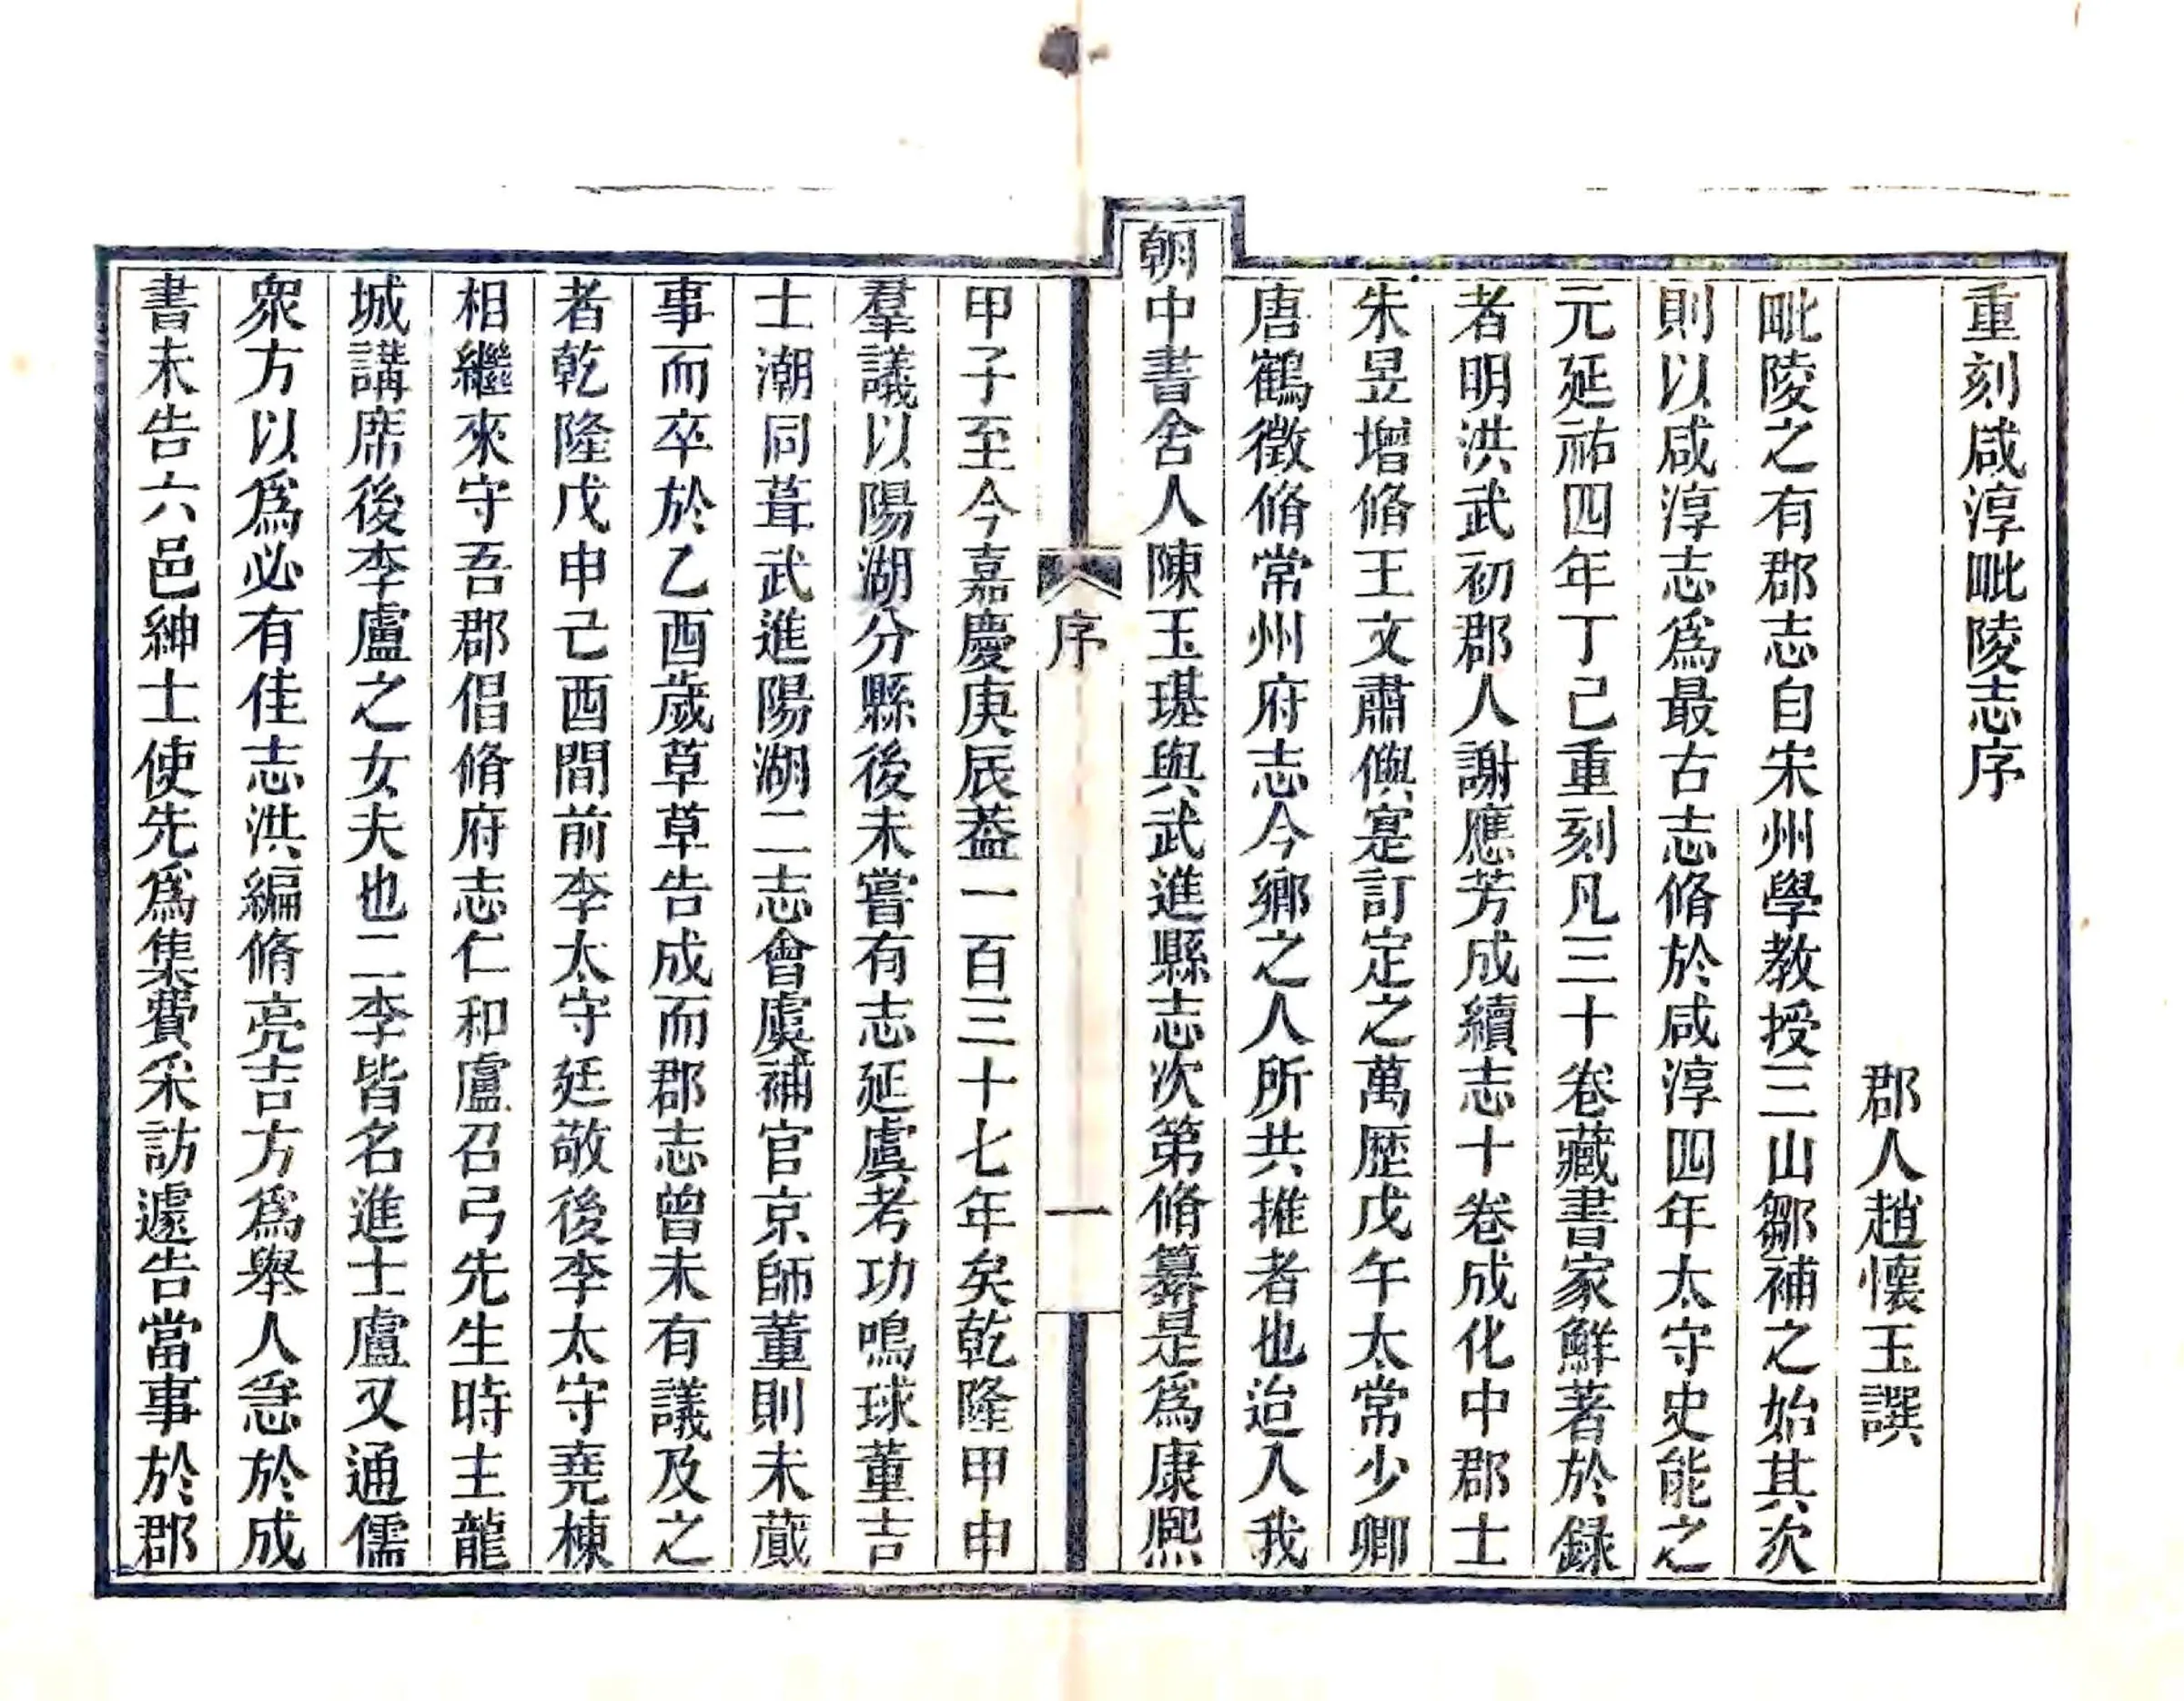 重刻咸淳毗陵志序
郡人趙懷玉譔
毗陵之有郡志自宋州學教授三山鄒補之始其次
則以咸淳志爲最古志脩於咸淳四年太守史能之
元延祐四年丁己重刻凡三十卷藏書家鮮著於録
者明洪武初郡人謝應芳成續志十卷成化中郡士
朱昱增脩王文肅㒜寔訂定之萬歷戊午太常少卿
唐鶴徵脩常州府志今鄉之人所共推者也迨入我
朝中書舍人陳玉璂與武進縣志次第脩纂是爲康熙
序
一
甲子至今嘉慶庚辰葢一百三十七年矣乾隆甲申
羣議以陽湖分縣後未嘗有志延虞考功鳴球董吉
士潮同葺武進陽湖二志會虞補官京師董則未蕆
事而卒於乙酉歲草草告成而郡志曾未有議及之
者乾隆戊申己酉間前李太守廷敬後李太守堯棟
相繼來守吾郡倡脩府志仁和盧召弓先生時主龍
城講席後李盧之女夫也二李皆名進士盧又通儒
衆方以爲必有佳志洪編脩亮吉方爲舉人急於成
書未告六邑紳士使先爲集費采訪遽告當事於郡